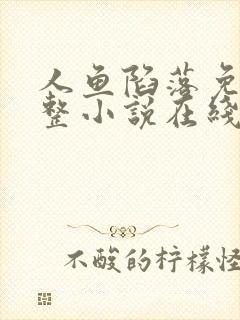 人鱼陷落免
整小说在线
不酸的柠檬怪